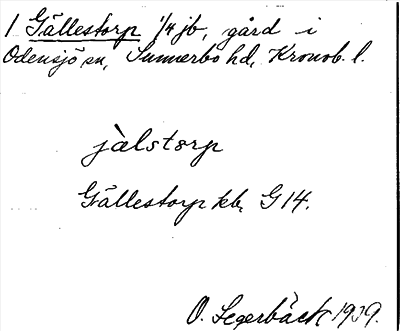 1 Gällestorp 1/4 jb, gård i
Odensjö sn, Sunnerbo hd, Kronob. l.
jàlstorp
Gällestorp kb, G 14.
O. Segerbäck 1939.